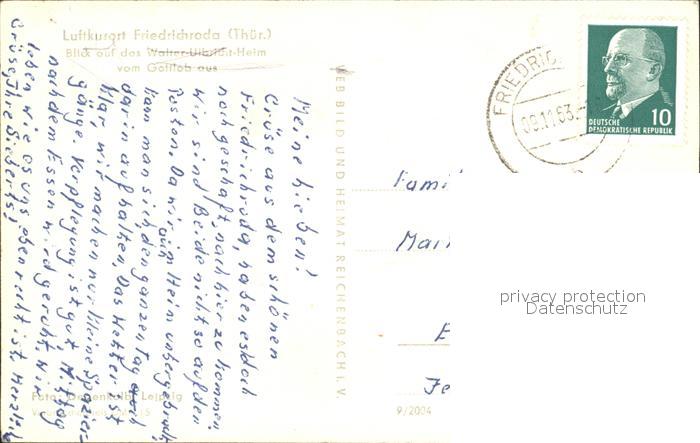 Luftkurort Friedrichroda (Thür.)
Blick auf das Walter-Ulbricht-Heim
vom Gottlob aus
Meine Lieben!
Grüße aus dem schönen
Friedrichroda, haben es doch
noch geschafft, nach hier zu kommen.
Wir sind Beide nicht so auf den
Posten. Da wir im Heim untergebracht,
kann man sich den ganzen Tag auch
darin aufhalten. Das Wetter ist
klar, wir machen nur kleine Spazier-
gänge. Verpflegung ist gut. Mittag
nach dem Essen wird geruht. Wir
leben wie es uns eben recht ist. Herzlich
Grüße, Ihre Siegerts,
VEB BILD UND HEIMAT REICHENBACH I. V.
FRIEDRIC
09.11.63
DEUTSCHE
DEMOKRATISCHE REPUBLIK
10
Fami
Mar
E
Je
privacy protection
Datenschutz
Foto: Leipzig
9/2004